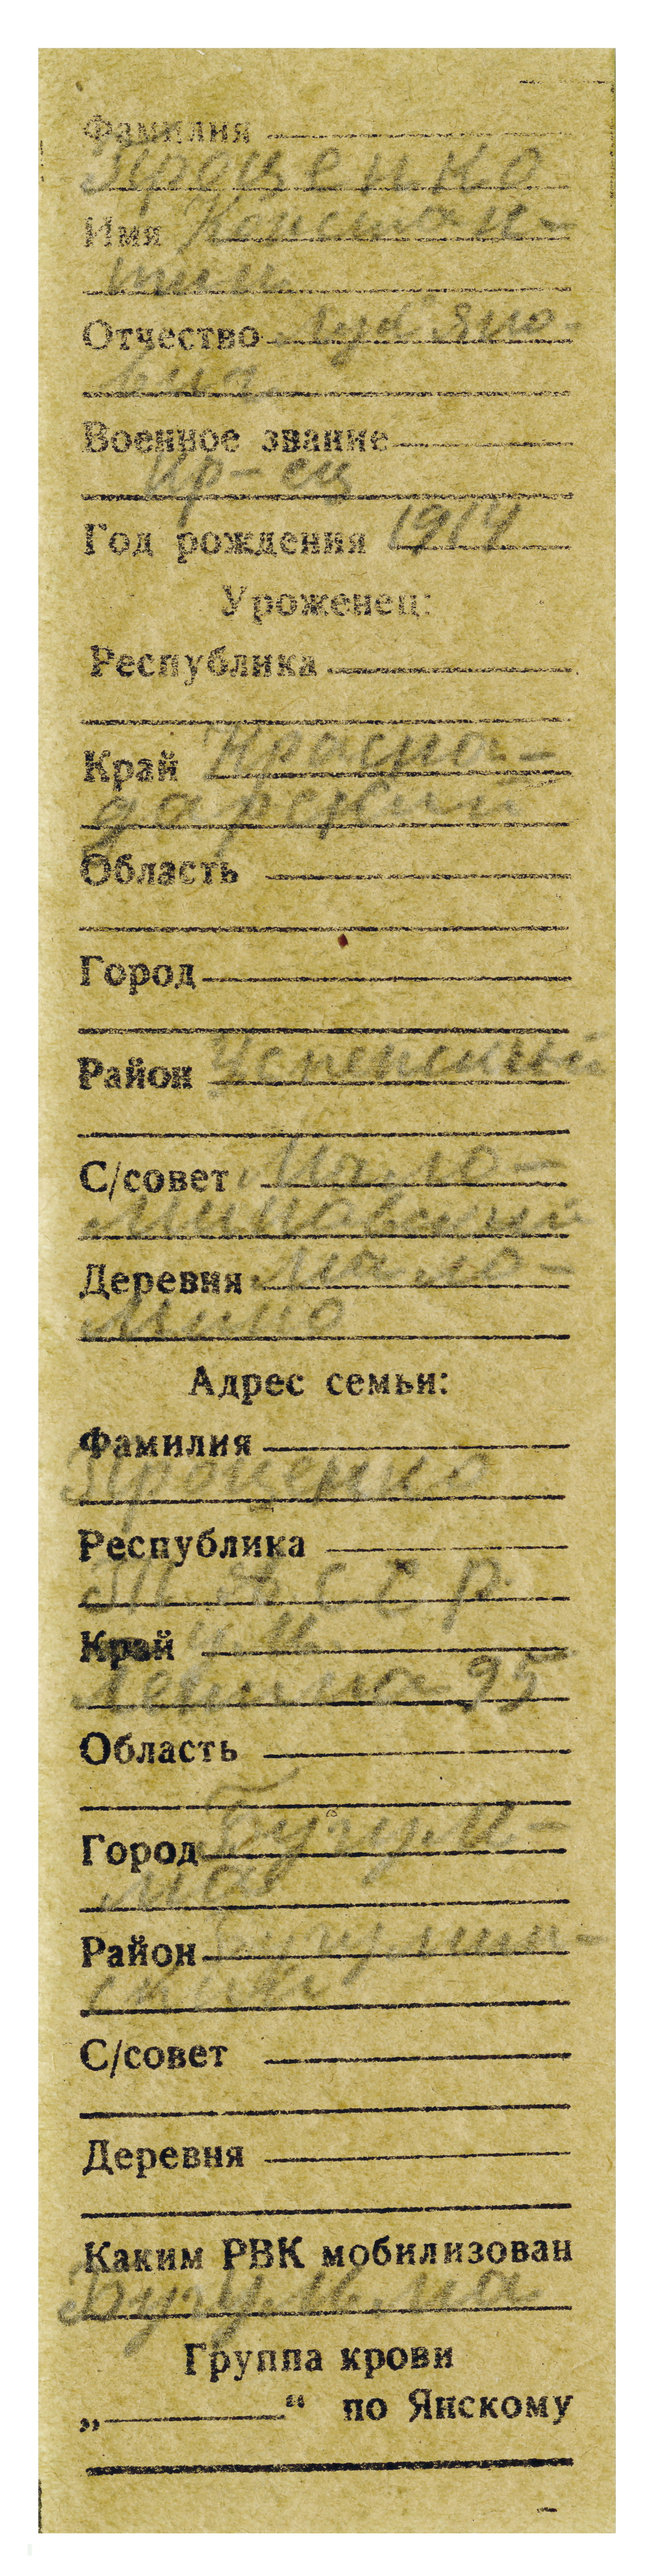 Фамилия
Проценко
Имя Констан-
тин
Отчество Лукьяно-
вич
Военное звание
Кр-ец
Год рождения 1914
Уроженец:
Республика
Край Красно-
дарский
Область
Город
Район Успенский
С/совет Мало-
Миновский
Деревня Мало-
Мино
Адрес семьи:
Фамилия
Проценко
Республика
Т А С С Р
Край ул
Ленина 95
Область
Город Бугуль-
ма
Район Бугульмин-
ский
С/совет
Деревня
Каким РВК мобилизован
Бугульма
Группа крови
„ “ по Янскому